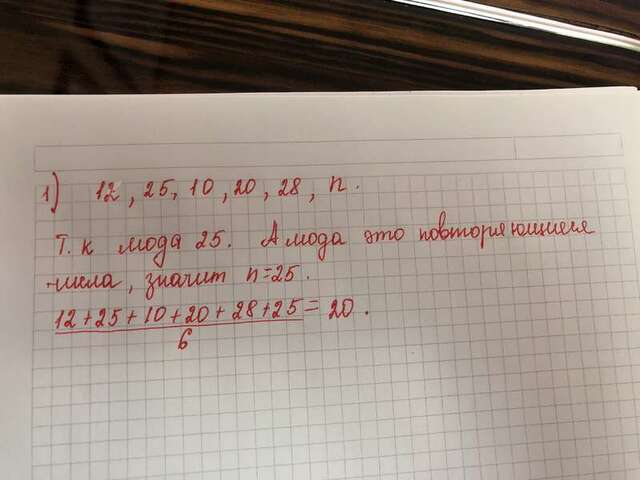 1) 12, 25, 10, 20, 28, n.
Т.к мода 25. А мода это повторяющиеся
числа, значит n=25.
12+25+10+20+28+25 = 20.
6